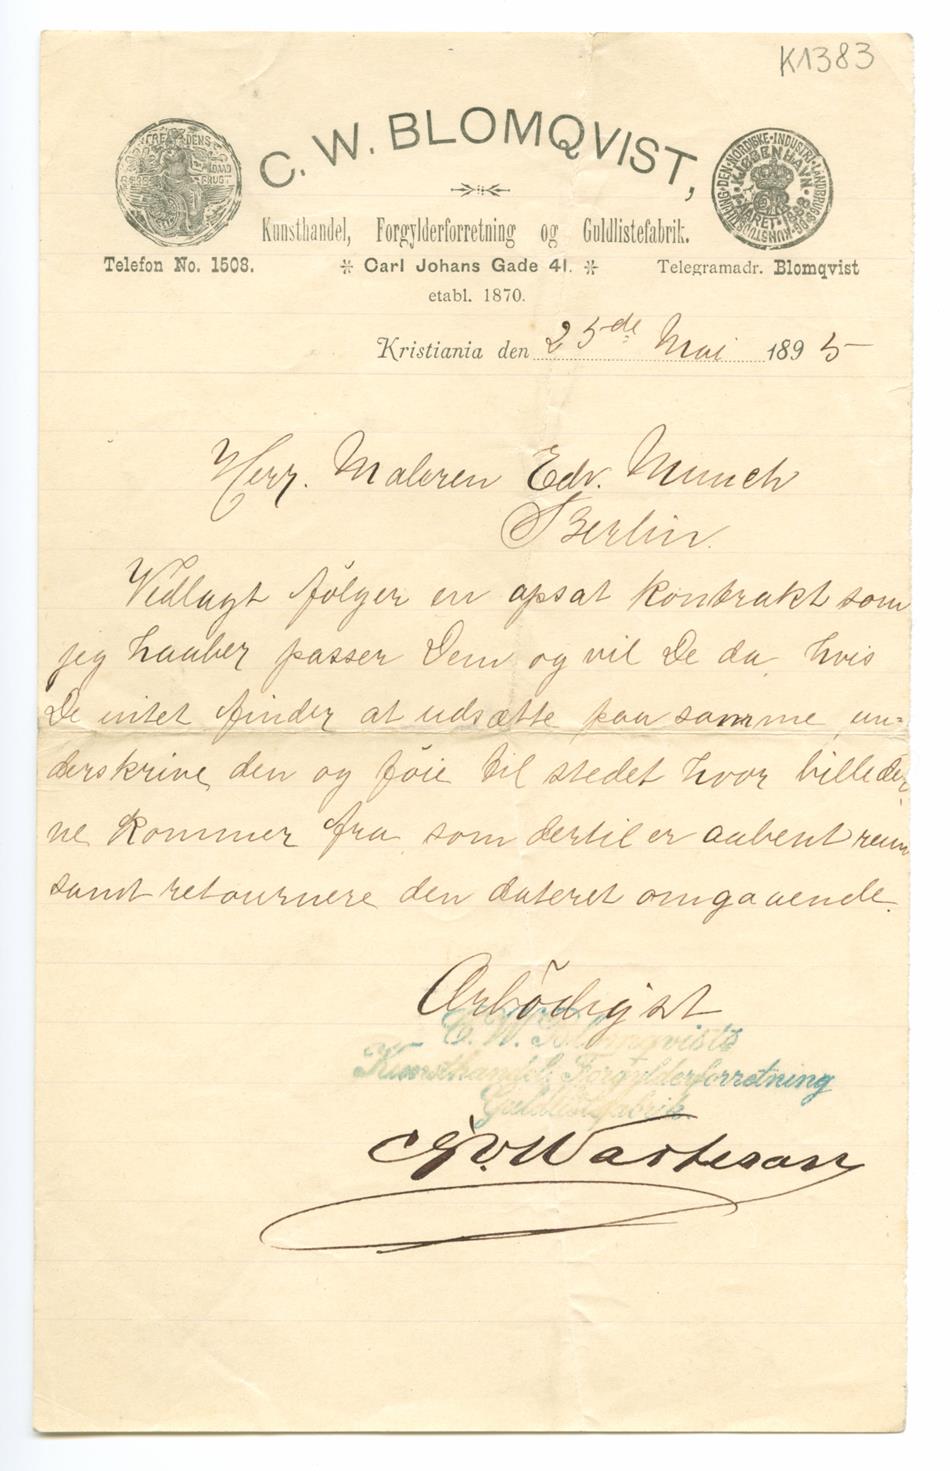 K1383
C. W. BLOMQVIST,
Kunsthandel, Forgylderforretning og Guldlistefabrik.
Telefon No. 1508.
Carl Johans Gade 41.
Telegramadr. Blomqvist
etabl. 1870.
DEN·NORDISKE·INDUSTRI·LANDBRUGS·OG·KUNSTUDSTILLING
KJØBENHAVN
AARET·1888
Kristiania den 25de Mai 1895
Herr. Maleren Edv. Munch
Berlin.
Vedlagt følger en opsat kontrakt som
jeg haaber passer Dem og vil De da, hvis
De intet finder at udsætte paa samme, un=
derskrive den og føie til stedet hvor billeder,
ne kommer fra, som dertil er aabent rum
samt retournere den dateret omgaaende.
Ærbødigst
C. W. Blomqvist's
Kunsthandel, Forgylderforretning
Guldlistefabrik.